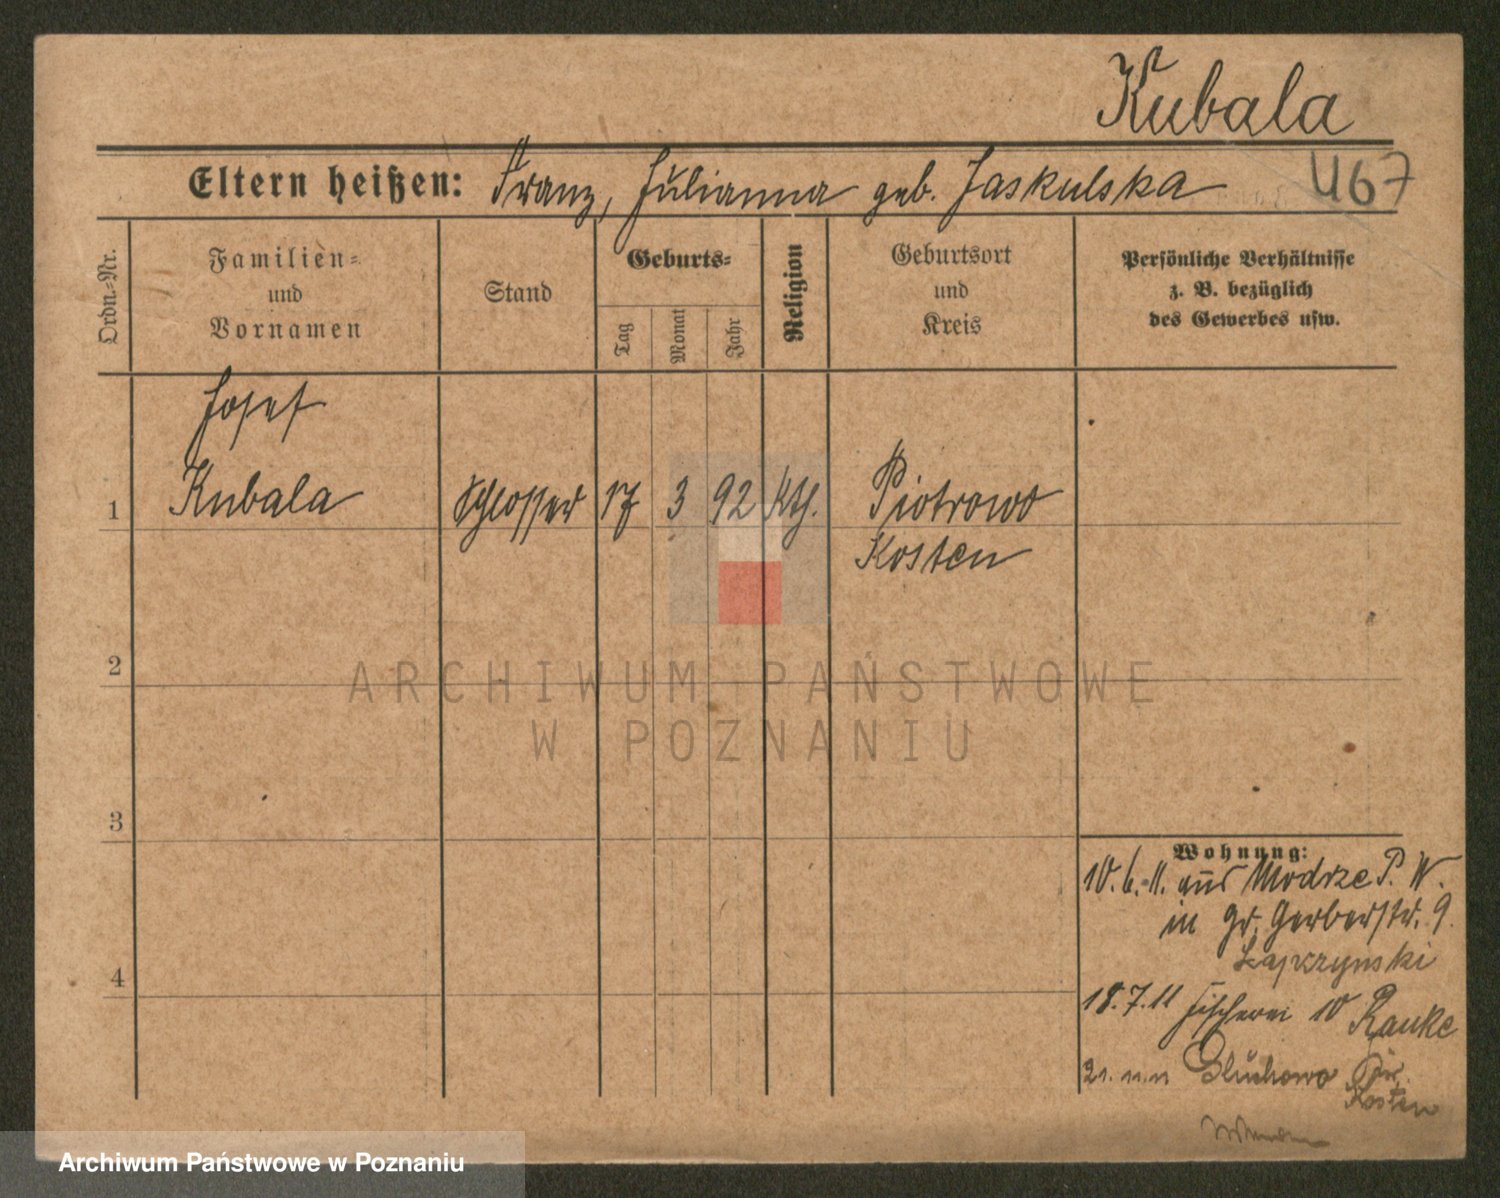 Kubala
Eltern heißen: Franz, Julianna geb. Jaskulska
467
Ordn.-Nr.
Familien-
und
Vornamen
Stand
Geburts-
Tag
Monat
Jahr
Religion
Geburtsort
und
Kreis
Persönliche Verhältnisse
z. B. bezüglich
des Gewerbes usw.
Josef
1 Kubala Schlosser 17 3 92 Kth. Piotrowo
Kosten
2
3
4
ARCHIWUM PAŃSTWOWE
W POZNANIU
Wohnung:
10. 6. 11. aus Modrze P. W.
in Gr. Gerberstr. 9.
18.7.11 Fischerei 10 Ranke
Gluchowo Kr.
Kosten
Archiwum Państwowe w Poznaniu